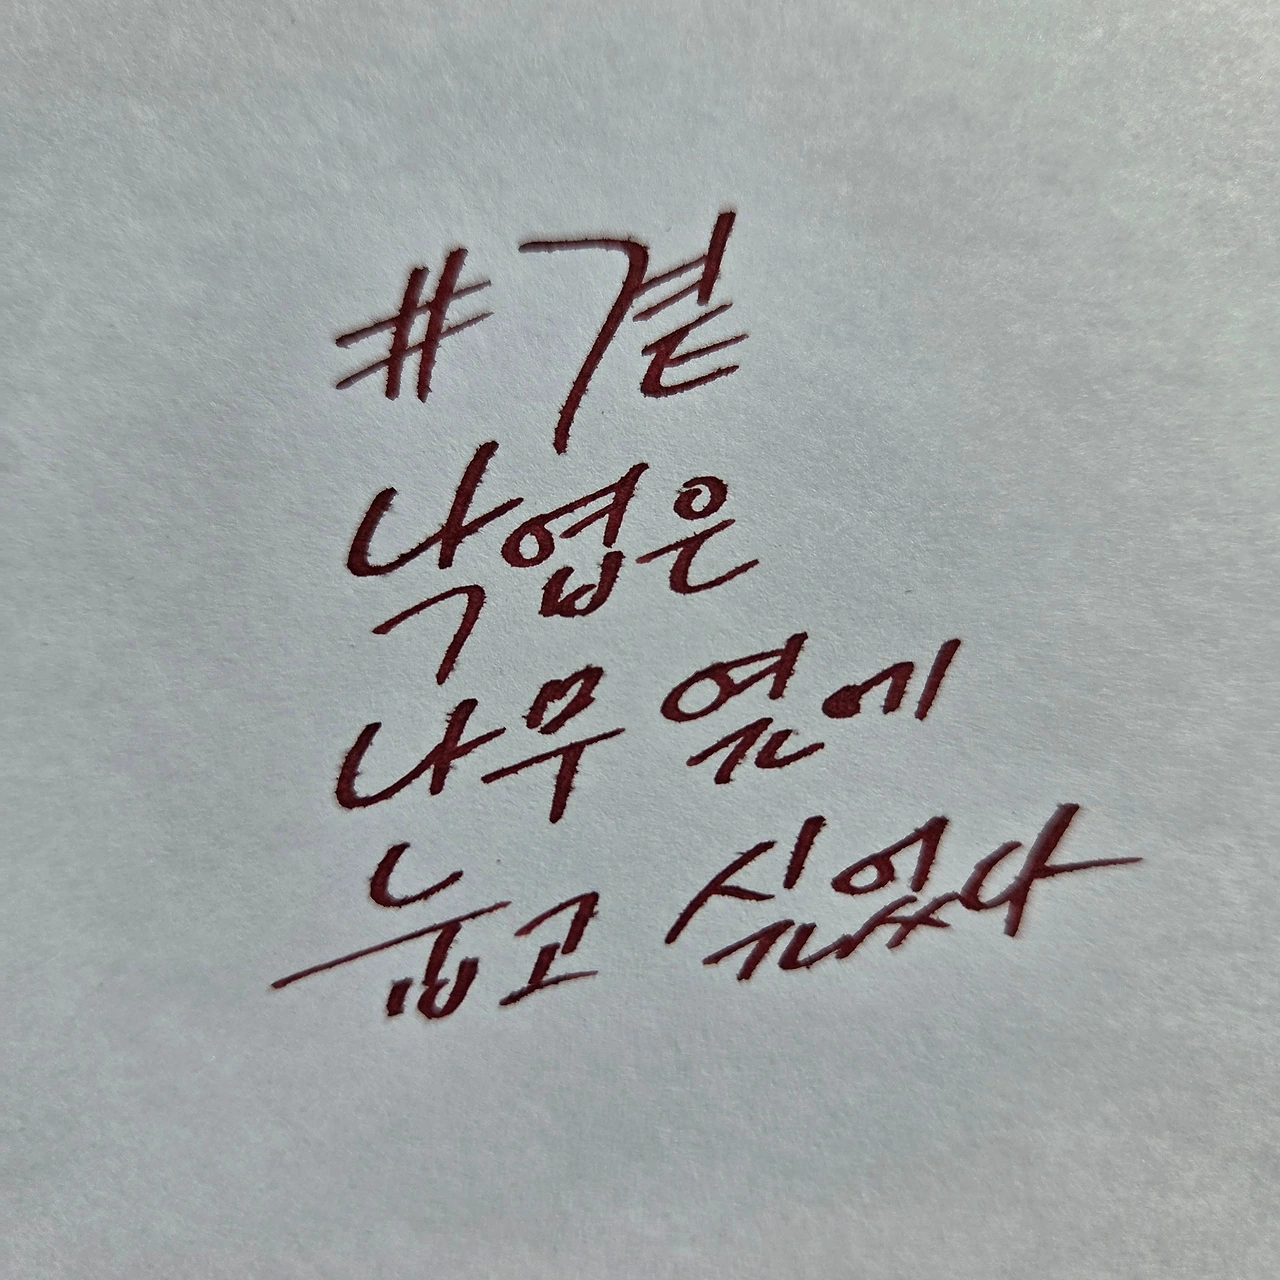 #곁
낙엽은
나무 옆에
눕고 싶었다